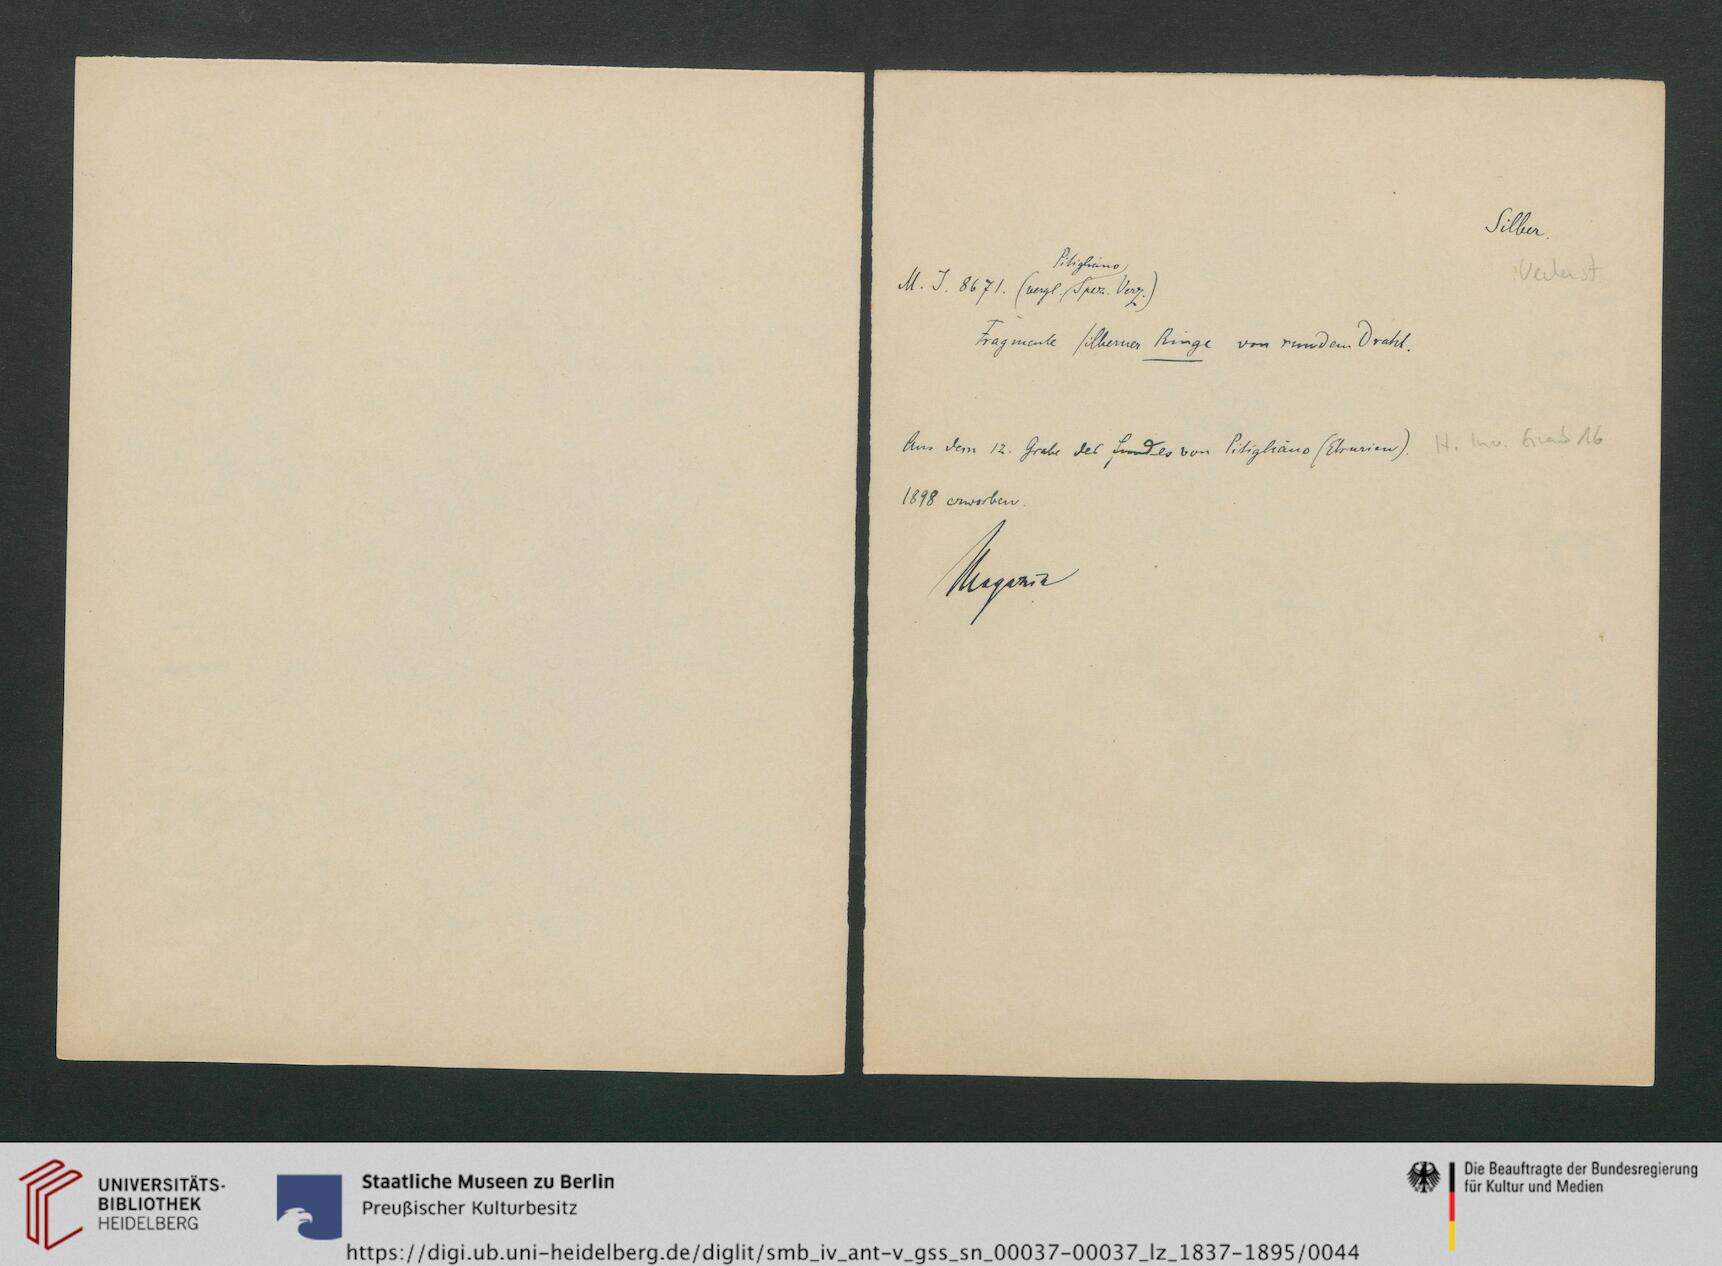 Silber.
Verlust
Pitigliano
M. J. 8671. (vergl. Spez. Verz.)
Fragmente silberner Ringe von rundem Draht.
Aus dem 12. Grabe des Fundes von Pitigliano (Etrurien). H. Inv. 16
1898 erworben.
Magazin
UNIVERSITÄTS-
BIBLIOTHEK
HEIDELBERG
Staatliche Museen zu Berlin
Preußischer Kulturbesitz
Die Beauftragte der Bundesregierung
für Kultur und Medien
https://digi.ub.uni-heidelberg.de/diglit/smb_iv_ant-v_gss_sn_00037-00037_lz_1837-1895/0044